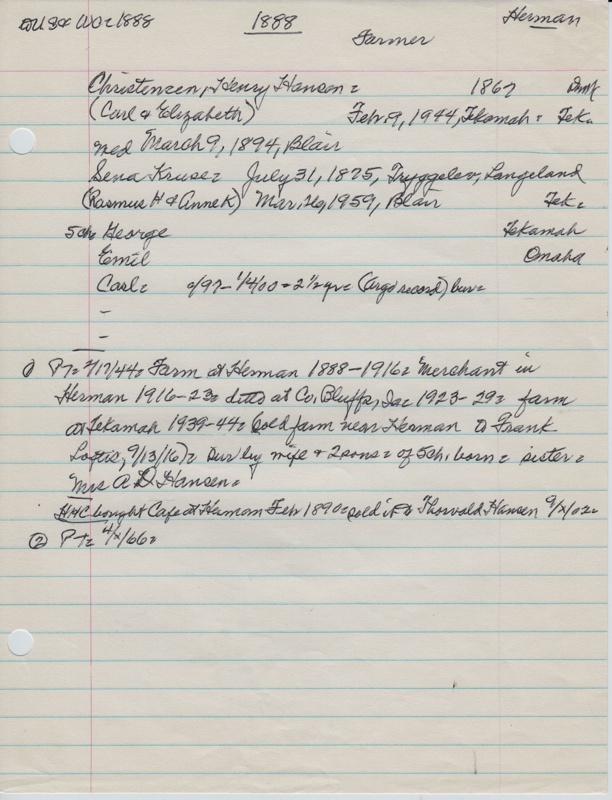 DU S & WO = 1888 1888 Herman
Farmer
Christensen, Henry Hansen = 1867 Dmk
(Carl & Elizabeth) Feb. 9, 1944, Tekamah = Tek.
med March 9, 1894, Blair
Sena Kruse = July 31, 1875, Tryggelev, Langeland
(Rasmus H & Anne K) Mar. 26, 1959, Blair Tek =
5 ch George Tekamah
Emil Omaha
Carl = 9/97 - 1/4/00 = 2 1/2 yr = (Argo record) bur =
-
-
① PT = 2/17/44 = Farm at Herman 1888-1916 = Merchant in
Herman 1916-23 = ditto at Co. Bluffs, Ia = 1923-29 = farm
at Tekamah 1939-44 = (sold farm near Herman to Frank
Loftis, 9/13/16) = Sur by wife & 2 sons = of 5 ch. born = sister =
Mrs A. D. Hansen =
HHC bought Cafe at Herman Feb 1890 = sold it to Thorvald Hansen 9/x/02 =
② PT = 4/x/66 =